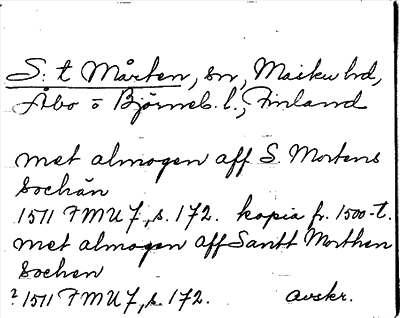 S:t Mårten, sn, Masku hd,
Åbo o Björneb. l., Finland
met almogen aff S. Mortens
sochän
1511 FMU 7, s. 172. kopia fr. 1500-t.
met almogen aff Sanct Morthen
sochen
? 1511 FMU 7, s. 172. avskr.